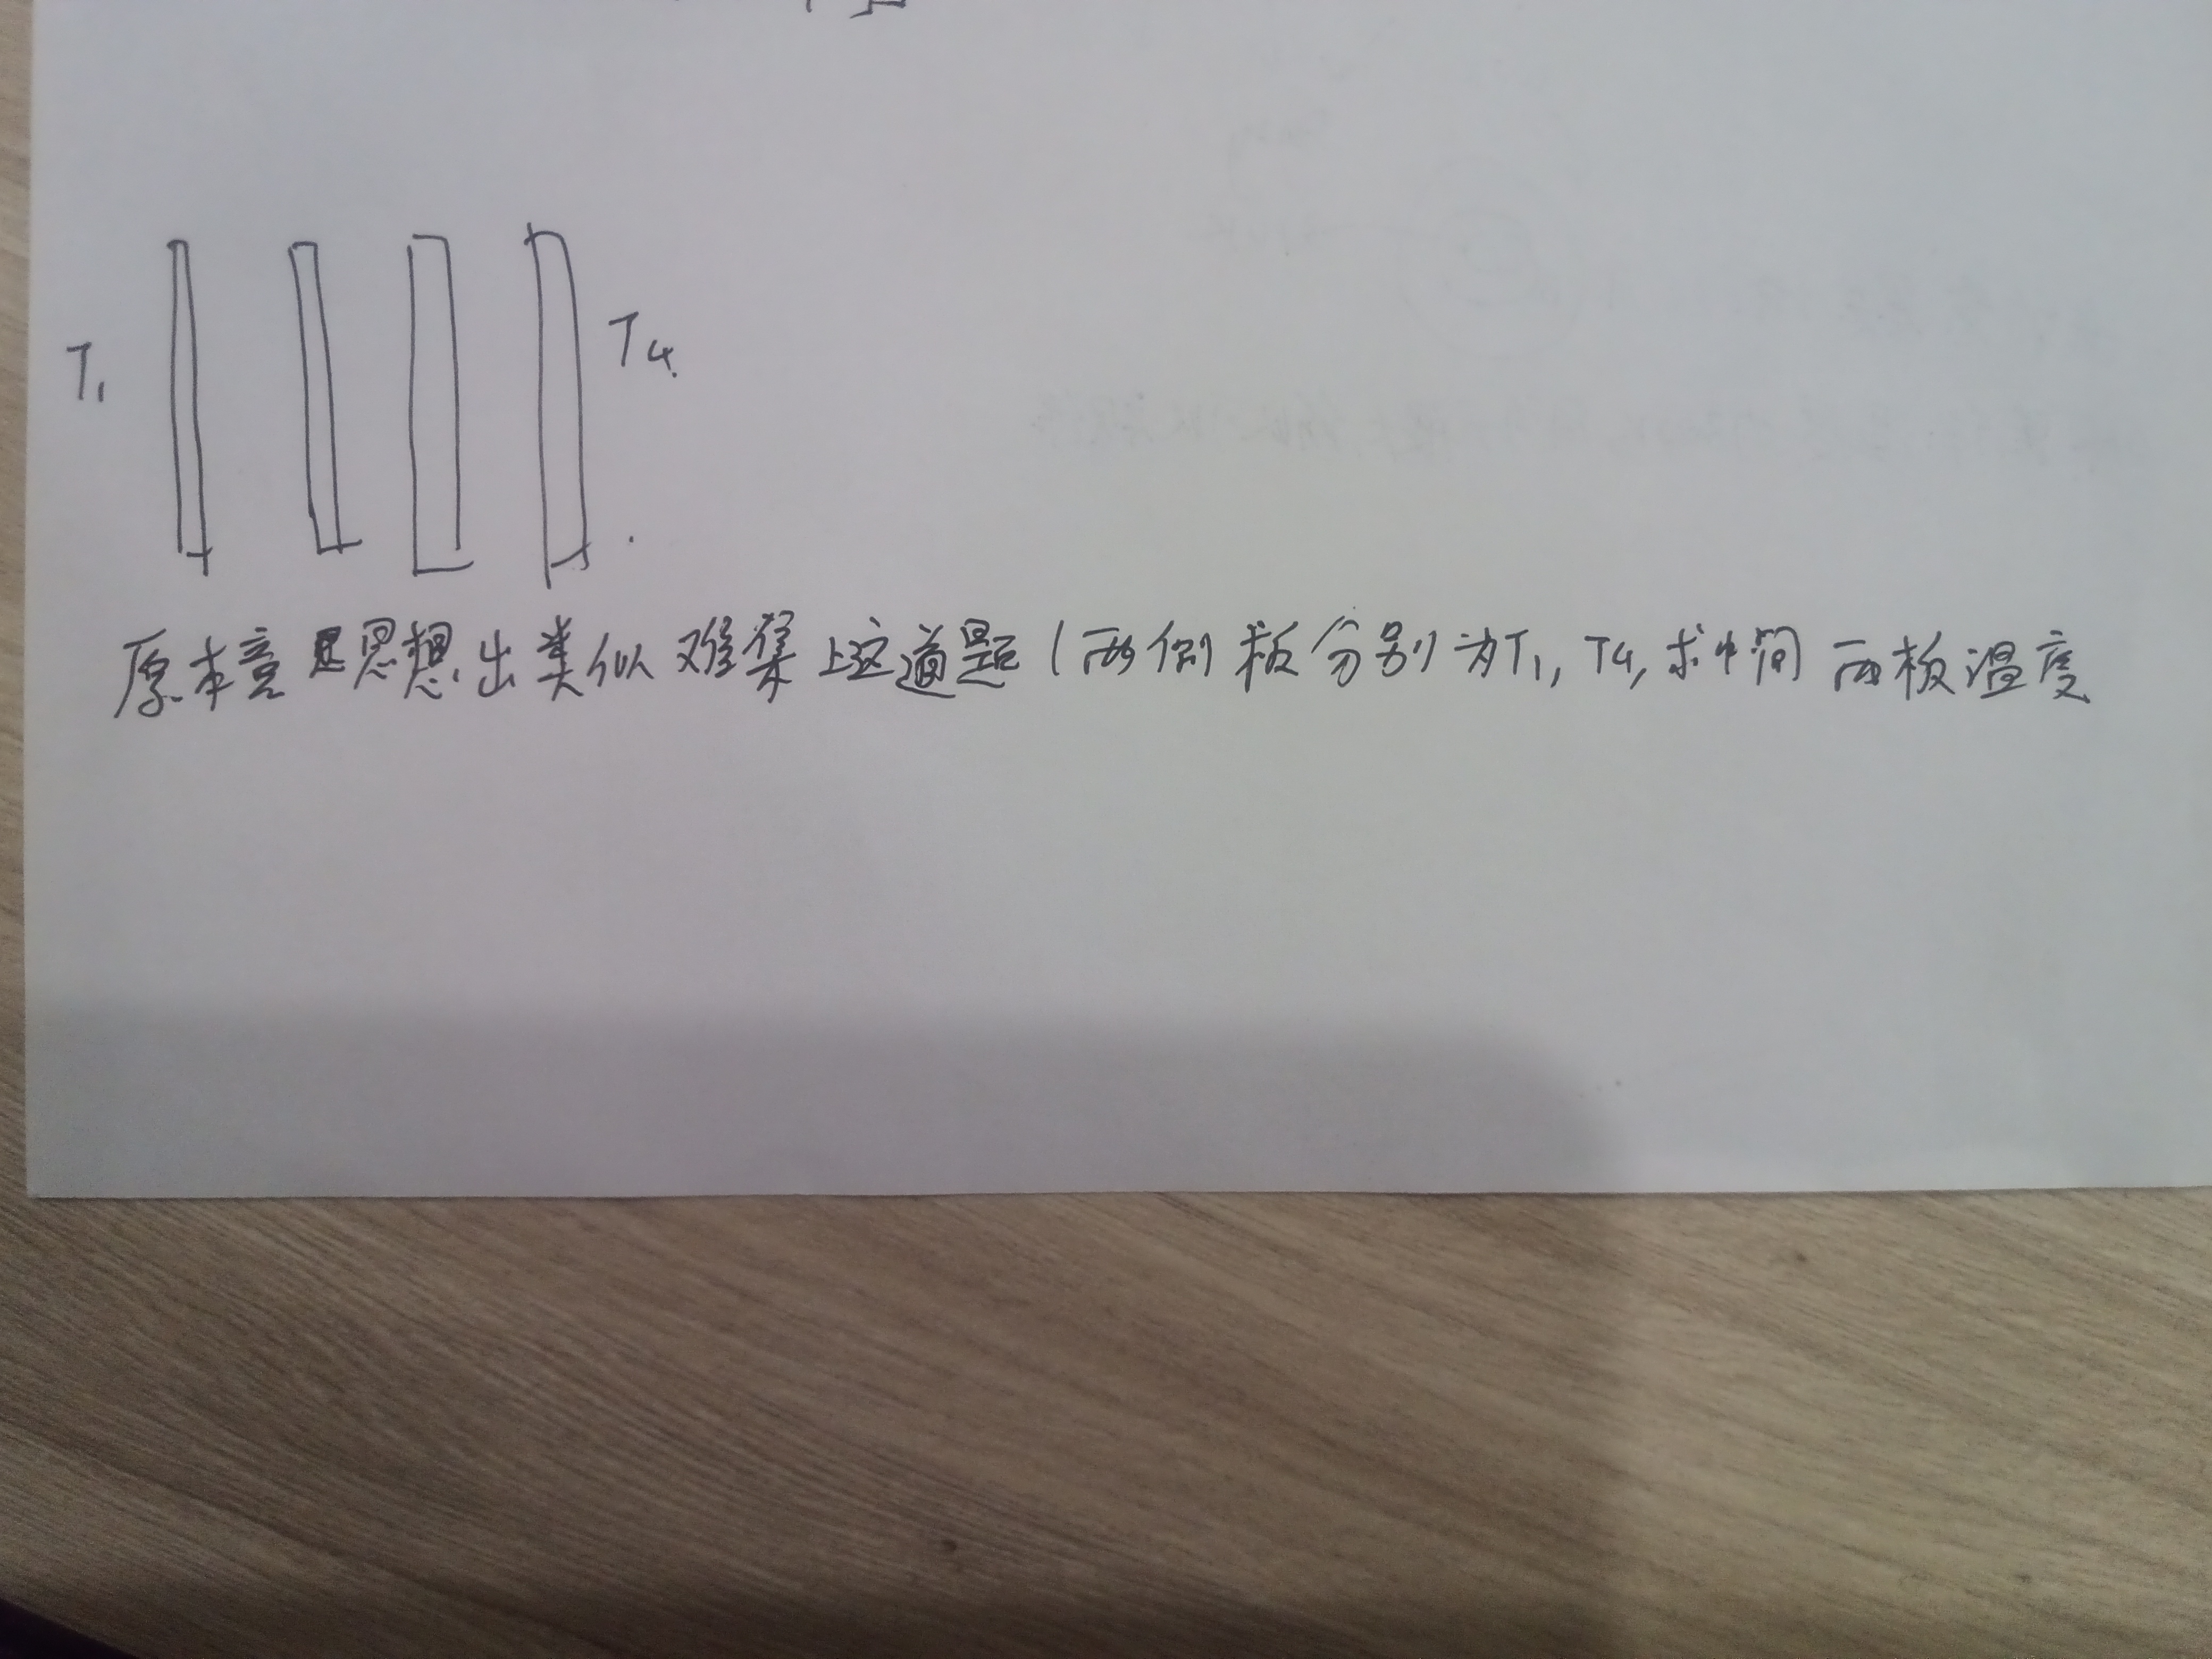 T₁
T₄
原本意思想出类似难集上这道题(两侧板分别为T₁, T₄, 求中间两板温度